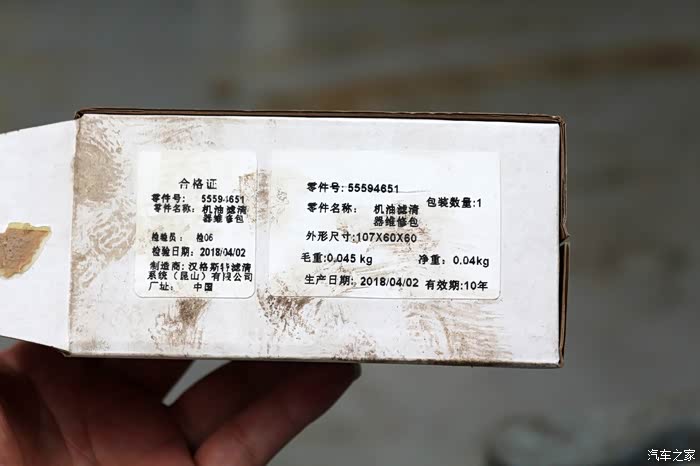 合格证
零件号: 55594651
零件名称: 机油滤清
器维修包
检验员: 检06
检验日期: 2018/04/02
制造商: 汉格斯特滤清
系统(昆山)有限公司
厂址: 中国
零件号: 55594651
包装数量:1
零件名称: 机油滤清
器维修包
外形尺寸:107X60X60
毛重:0.045 kg 净重: 0.04kg
生产日期: 2018/04/02 有效期:10年
汽车之家